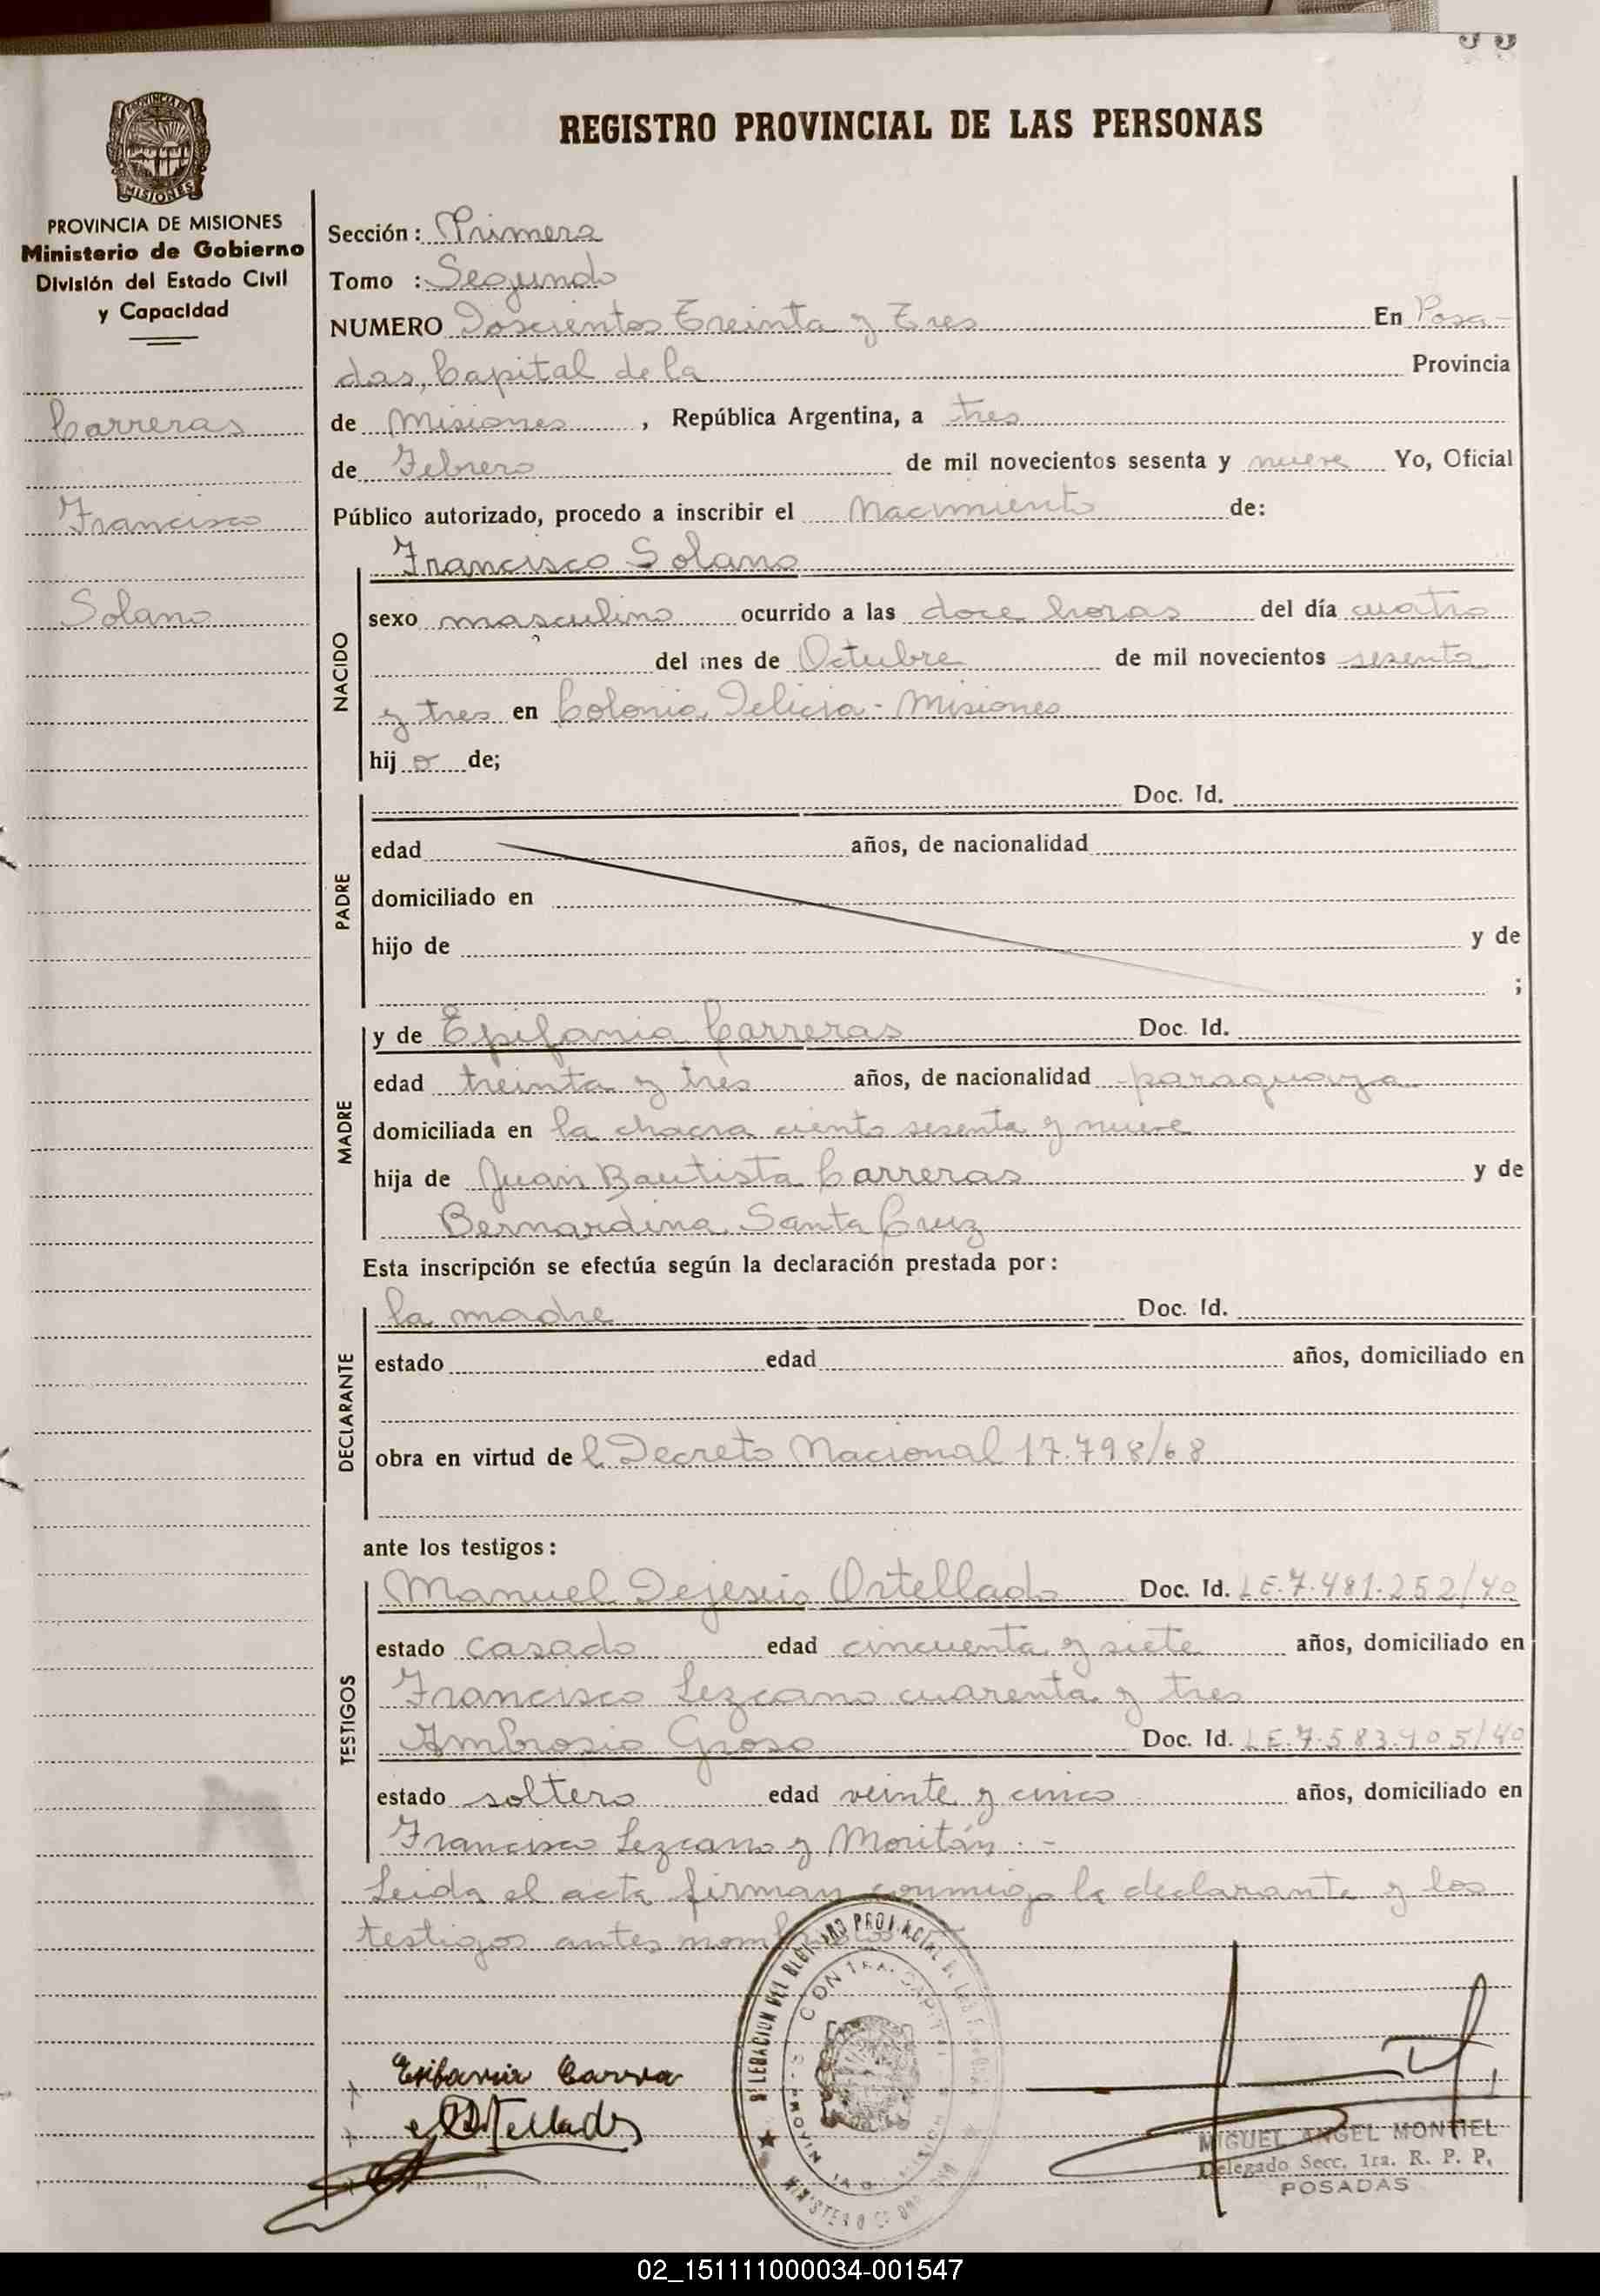 REGISTRO PROVINCIAL DE LAS PERSONAS
PROVINCIA DE MISIONES
MISIONES
PROVINCIA DE MISIONES
Ministerio de Gobierno
División del Estado Civil
y Capacidad
Carreras
Francisco
Solano
Sección: Primera
Tomo : Segundo
NUMERO Doscientos Treinta y Tres En Posa-
das, Capital de la Provincia
de Misiones, República Argentina, a tres
de Febrero de mil novecientos sesenta y nueve Yo, Oficial
Público autorizado, procedo a inscribir el Nacimiento de:
NACIDO
Francisco Solano
sexo masculino ocurrido a las doce horas del día cuatro
del mes de Octubre de mil novecientos sesenta
y tres en Colonia Delicia - Misiones
hij o de;
PADRE
Doc. Id.
edad años, de nacionalidad
domiciliado en
hijo de y de
;
MADRE
y de Epifania Carreras Doc. Id.
edad treinta y tres años, de nacionalidad paraguaya
domiciliada en la chacra ciento sesenta y nueve
hija de Juan Bautista Carreras y de
Bernardina Santa Cruz
Esta inscripción se efectúa según la declaración prestada por:
DECLARANTE
la madre Doc. Id.
estado edad años, domiciliado en
obra en virtud de l Decreto Nacional 17.798/68
ante los testigos:
TESTIGOS
Manuel Dejesús Ortellado Doc. Id. L E. 7.481.252/40
estado casado edad cincuenta y siete años, domiciliado en
Francisco Lezcano cuarenta y tres
Ambrosio Groso Doc. Id. L E. 7.583.405/40
estado soltero edad veinte y cinco años, domiciliado en
Francisco Lezcano y Moritán. -
Leida el acta firman conmigo la declarante y los
testigos antes nombrados
Epifania Carrera
Ortellado
MIGUEL ANGEL MONTIEL
Delegado Secc. 1ra. R. P. P.
POSADAS
02_151111000034-001547